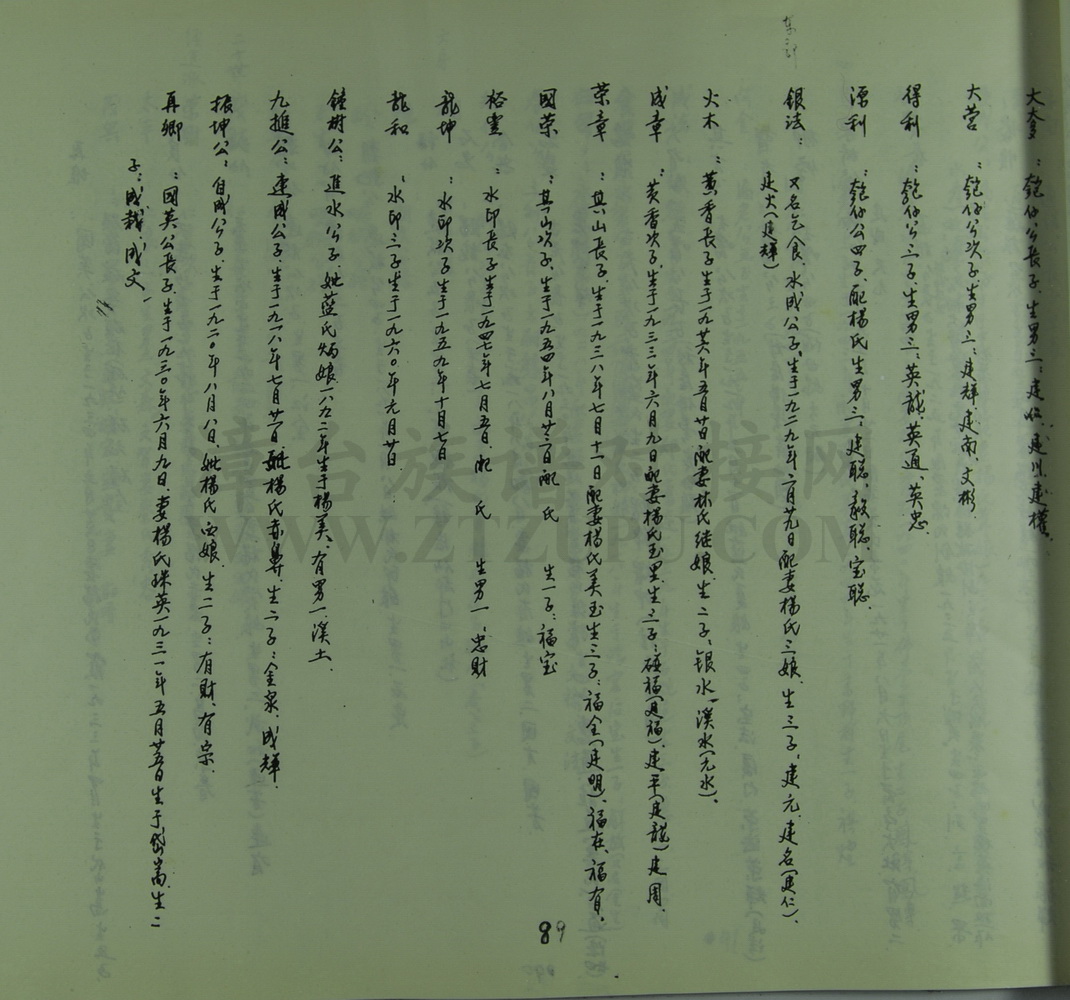 大㚻：尪仔公長子，生男三：建收、建川、建權。
大营：尪仔公次子，生男三：建輝、建南、文彬。
得利：尪仔公三子，生男三：英龍、英通、英忠。
源利：尪仔公四子，配楊氏生男三：建聪、毅聪、宝聪。
银法：又名乞食，水成公子，生于一九二九年二月廿九日配妻楊氏三娘，生三子，建元、建名(建仁)、
建火(建輝)
火木：黃香長子生于一九廿六年五月廿日配妻林氏继娘，生二子，银水、溪水(元水)、
成章：黃香次子，生于一九三三年六月九日配妻楊氏玉里，生三子：福(建福)、建平(建龍)建周、
荣章：其山長子，生于一九三八年七月十一日配妻楊氏美玉生三子：福全(建明)、福在、福有。
國荣：其山次子，生于一九五四年八月廿二日配 氏 生一子：福宝
裕雲：水印長子生于一九四七年七月五日，配 氏 生男一，忠财
龍坤：水印次子生于一九五九年十月七日
龍和：水印三子生于一九六〇年元月廿日
鐘樹公：進水公子，妣蓝氏炳娘一八九二年生于楊美、有男一，溪土、
九挺公：連成公子，生于一九一八年七月廿一日，妣楊氏赤鼻，生二子：金泉、成輝
振坤公：自成公子，生于一九二〇年八月八日、妣楊氏西娘，生二子：有財、有宗、
再卿：國英公長子，生于一九三〇年六月九日，妻楊氏珠英一九三一年五月廿五日生于岱嵩，生二
子：成裁成文、
89
漳台族谱对接网
WWW.ZTZUPU.COM